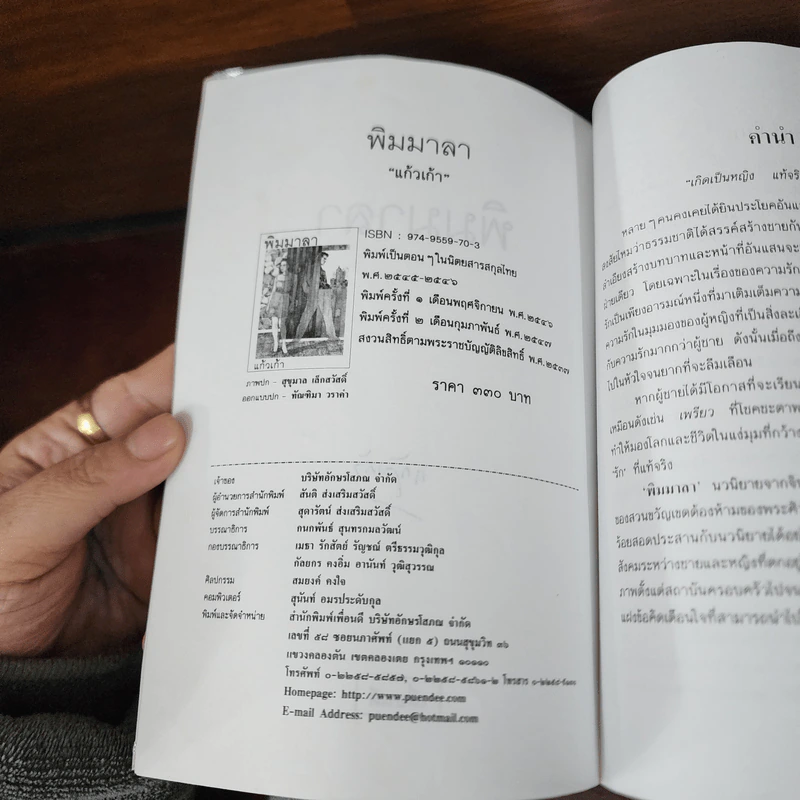 พิมมาลา
"แก้วเก้า"
พิมมาลา
แก้วเก้า
ภาพปก - สุขุมาล เล็กสวัสดิ์
ออกแบบปก - ทัณฑิมา วราคำ
ISBN : 974-9559-70-3
พิมพ์เป็นตอน ๆ ในนิตยสารสกุลไทย
พ.ศ.๒๕๔๕-๒๕๔๖
พิมพ์ครั้งที่ ๑ เดือนพฤศจิกายน พ.ศ.๒๕๔๖
พิมพ์ครั้งที่ ๒ เดือนกุมภาพันธ์ พ.ศ.๒๕๔๗
สงวนสิทธิ์ตามพระราชบัญญัติลิขสิทธิ์ พ.ศ.๒๕๓๗
ราคา ๓๓๐ บาท
เจ้าของ บริษัทอักษรโสภณ จำกัด
ผู้อำนวยการสำนักพิมพ์ สันติ ส่งเสริมสวัสดิ์
ผู้จัดการสำนักพิมพ์ สุดารัตน์ ส่งเสริมสวัสดิ์
บรรณาธิการ กนกพันธ์ สุนทรกมลวัฒน์
กองบรรณาธิการ เมธา รักสัตย์ รัญชณ์ ตรีธรรมวุฒิกุล
กัลยกร คงอิ่ม อานันท์ วุฒิสุวรรณ
ศิลปกรรม สมยงค์ คงใจ
คอมพิวเตอร์ สุนันท์ อมรประดับกุล
พิมพ์และจัดจำหน่าย สำนักพิมพ์เพื่อนดี บริษัทอักษรโสภณ จำกัด
เลขที่ ๕๘ ซอยนภาศัพท์ (แยก ๕) ถนนสุขุมวิท ๓๖
แขวงคลองตัน เขตคลองเตย กรุงเทพฯ ๑๐๑๑๐
โทรศัพท์ ๐-๒๒๕๘-๕๘๕๗, ๐-๒๒๕๘-๕๘๖๑-๒ โทรสาร
Homepage: http://www.puendee.com
E-mail Address: puendee@hotmail.com
คำนำ
"เกิดเป็นหญิง แท้จริ
หลาย ๆ คนคงเคยได้ยินประโยคอันแ
สงสัยไหมว่าธรรมชาติได้สรรค์สร้างชายกั
ลำเอียงสร้างบทบาทและหน้าที่อันแสนจะ
ฝ่ายเดียว โดยเฉพาะในเรื่องของความรัก
รักเป็นเพียงอารมณ์หนึ่งที่มาเติมเต็มความ
ความรักในมุมมองของผู้หญิงที่เป็นสิ่งละเ
กับความรักมากกว่าผู้ชาย ดังนั้นเมื่อถึง
ไปในหัวใจจนยากที่จะลืมเลือน
หากผู้ชายได้มีโอกาสที่จะเรียน
เหมือนดังเช่น เพรียว ที่โชคชะตาพ
ทำให้มองโลกและชีวิตในแง่มุมที่กว้าง
'รัก' ที่แท้จริง
'พิมมาลา' นวนิยายจากจิน
ของสวนขวัญเขตต้องห้ามของพระศิ
ร้อยสอดประสานกับนวนิยายได้อย
สังคมระหว่างชายและหญิงที่ตกอยู่
ภาพตั้งแต่สถาบันครอบครัวไปจน
แฝงข้อคิดเตือนใจที่สามารถนำไป